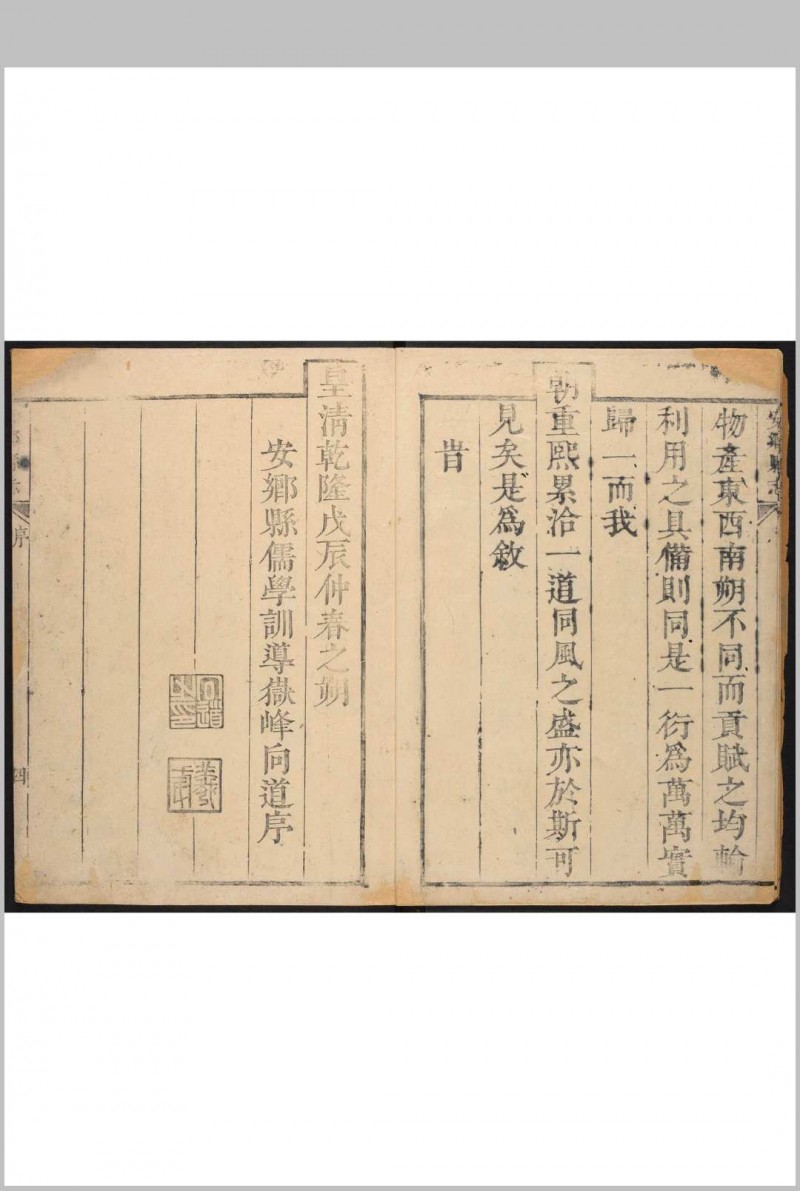 安鄉縣志
物產東西南朔不同而貢賦之均輸
利用之具備則同是一衍為萬萬實
歸一而我
朝重熙累洽一道同風之盛亦於斯可
見矣是為敘
旹
皇淸乾隆戊辰仲春之朔
安鄉縣儒學訓導嶽峰向道序
向道之印
序
四